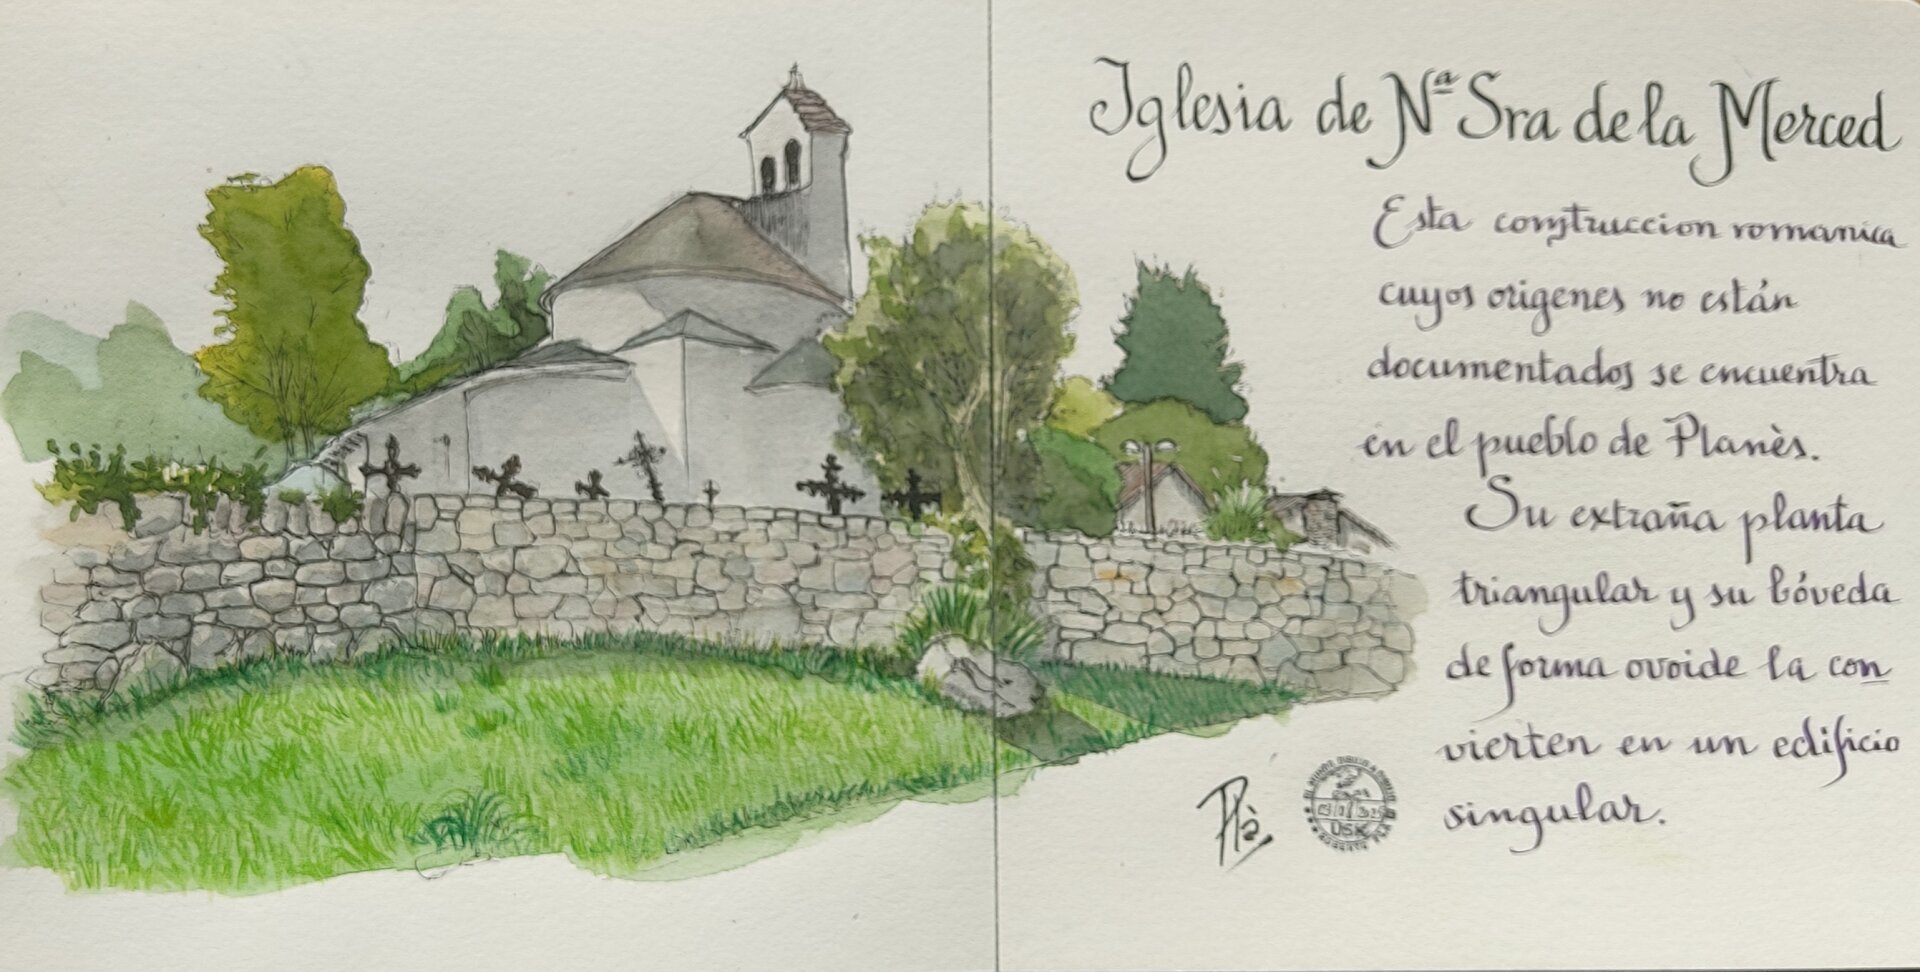 Iglesia de Nª Sra de la Merced
Esta construccion romanica
cuyos origenes no están
documentados se encuentra
en el pueblo de Planès.
Su extraña planta
triangular y su bóveda
de forma ovoide la con
vierten en un edificio
singular.
Plà
USK